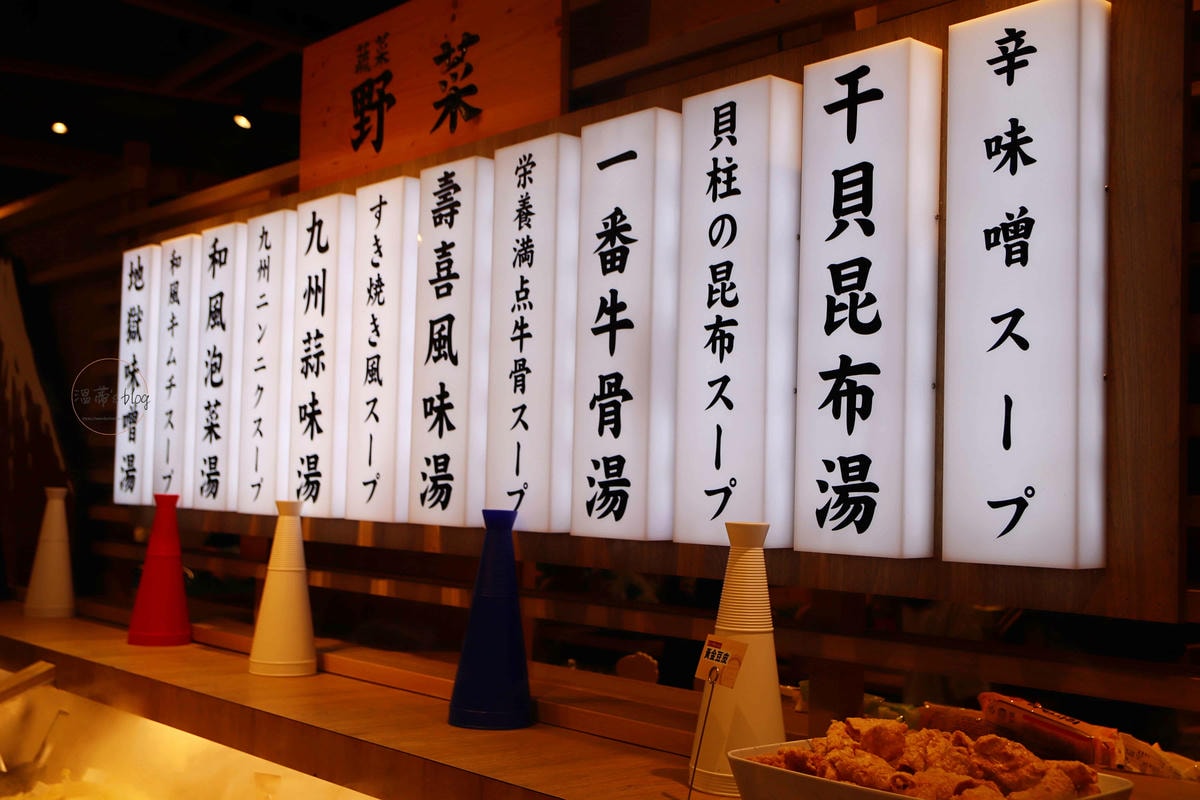 蔬菜
野菜
辛味噌スープ
干貝昆布湯
貝柱の昆布スープ
一番牛骨湯
栄養満点牛骨スープ
壽喜風味湯
すき焼き風スープ
九州蒜味湯
九州ニンニクスープ
和風泡菜湯
和風キムチスープ
地獄味噌湯
黃金豆皮
溫蒂's blog